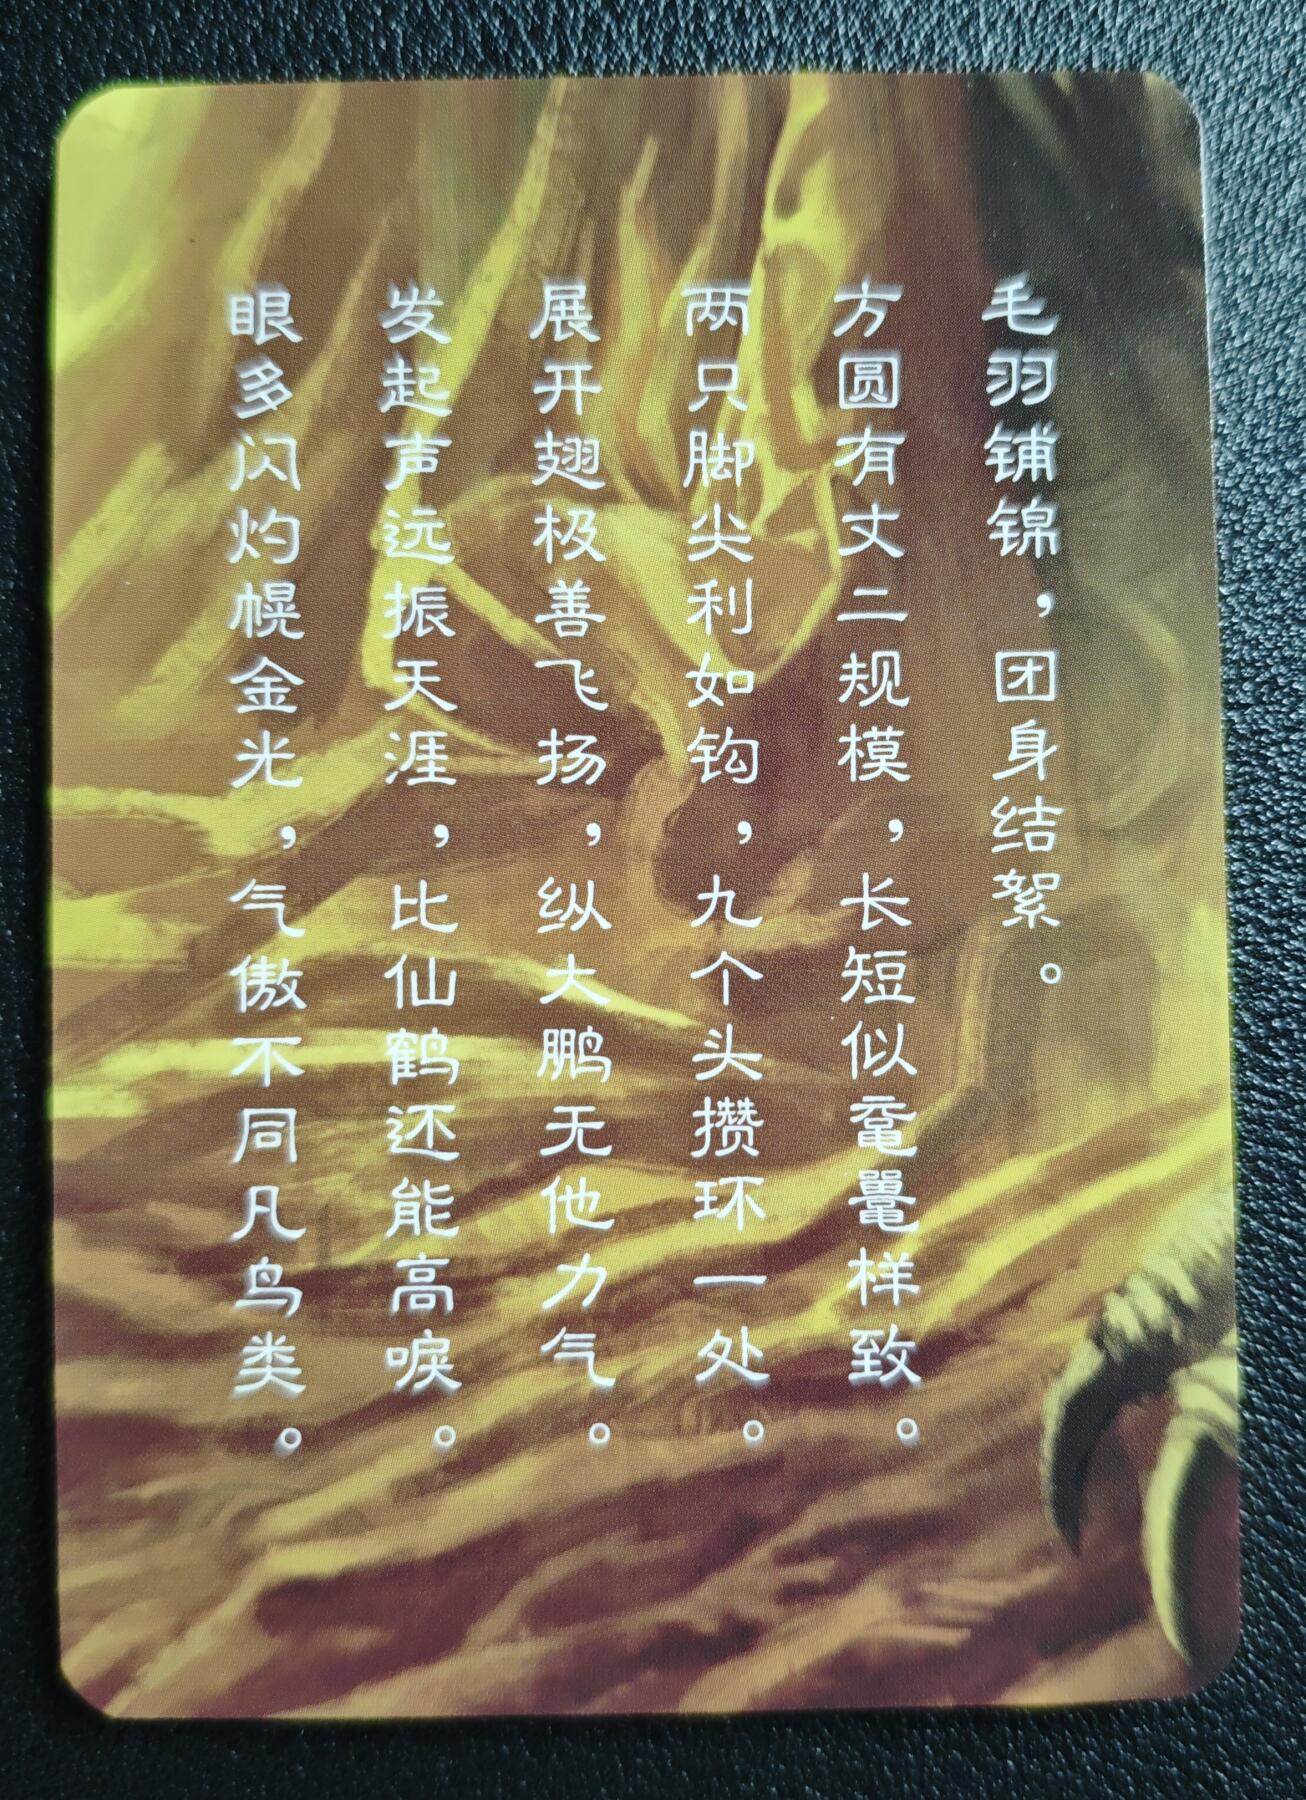 毛羽铺锦，团身结絮。
方圆有丈二规模，长短似鼋鼍样致。
两只脚尖利如钩，九个头攒环一处。
展开翅极善飞扬，纵大鹏无他力气。
发起声远振天涯，比仙鹤还能高唳。
眼多闪灼幌金光，气傲不同凡鸟类。